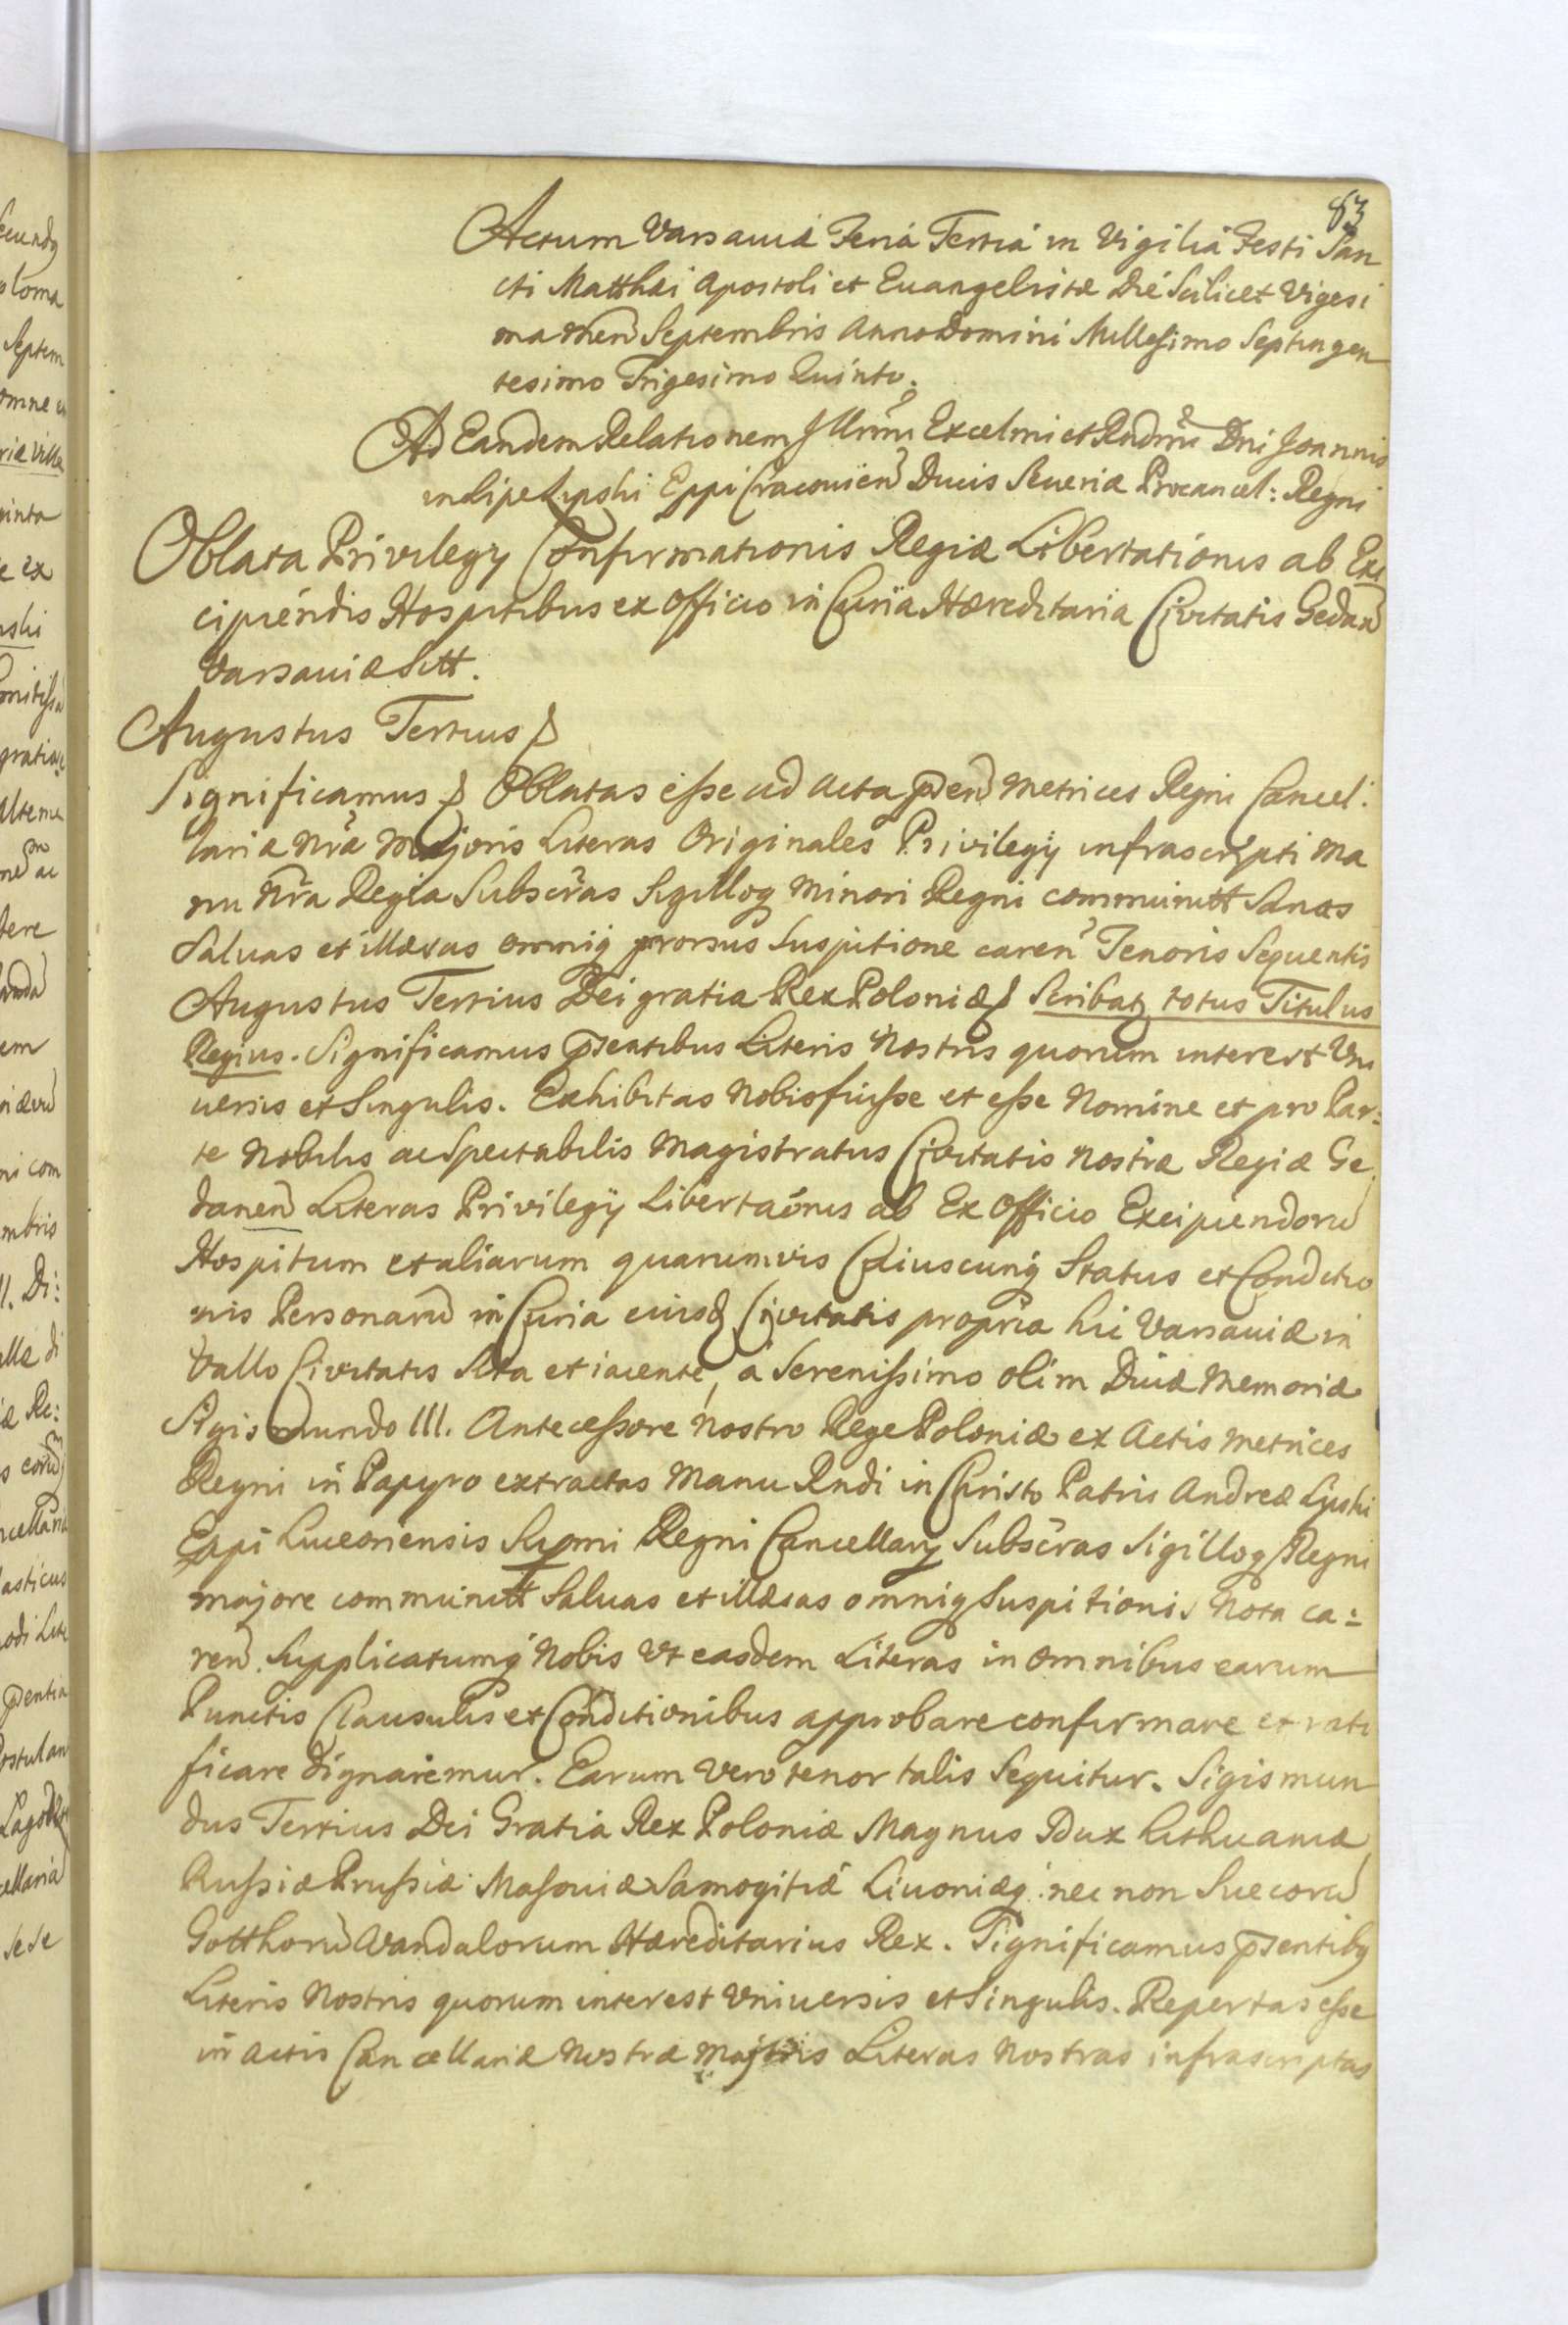 83
Actum Varsaviæ Feria Tertia in Vigilia Festi San
cti Matthæi Apostoli et Euangelistæ Die Scilicet Vigesi
ma Men Septembris Anno Domini Millesimo Septingen
tesimo Trigesimo Quinto.
Ad Eandem Relationem Illrmi Excelmi et Rndmi Dni Joannis
in Lipe Lipski Eppi Cracouien Ducis Seueriæ Procancel: Regni
Oblata Privilegÿ Confirmationis Regiæ Libertationis ab Exci
cipiendis Hospitibus ex Officio in Curia Hæreditaria Civitatis Gedan
Varsauiæ Sitt.
Augustus Tertius
Significamus Oblatas esse ad Acta pden Metrices Regni Cancel:
lariæ nræ Majoris Literas Originales Privilegÿ infrascripti Ma
nu Nra Regia Subscras Sigilloq Minori Regni communitt Sanas
Saluas et illæsas omniq prorsus Suspitione caren Tenoris Sequentis
Augustus Tertius Dei gratia Rex Poloniæ Scribat totus Titulus
Regius. Significamus psentibus Literis Nostris quorum interest Vni
uersis et Singulis. Exhibitas Nobis fuisse et esse Nomine et pro Par:
te Nobilis ac Spectabilis Magistratus Civitatis Nostræ Regiæ Ge
danen Literas Privilegÿ Libertaonis ab Ex Officio Excipiendoru
Hospitum et aliarum quarumvis Cuiuscunq Status et Conditio
nis Personaru in Curia eiusd Civitatis propria hic Varsauiæ in
Vallo Civitatis Sita et iacente, a Serenissimo olim Diuæ Memoriæ
Sigismundo III. Antecessore Nostro Rege Poloniæ ex Actis Metrices
Regni in Papyro extractas Manu Rndi in Christo Patris Andreæ Lipski
Eppi Luceoriensis Supmi Regni Cancellarÿ Subscras Sigilloq Regni
majore communitt Saluas et illæsas omniq Suspitionis Nota ca:
ren. Supplicatumq Nobis Vt easdem Literas in omnibus earum
Punctis Clausulis et Conditionibus approbare confirmare et rati
ficare dignaremur. Earum vero tenor talis Sequitur. Sigismun
dus Tertius Dei Gratia Rex Poloniæ Magnus Dux Lithuaniæ
Russiæ Prussiæ Masouiæ Samogitiæ Liuoniæq nec non Suecoru
Gotthoru Vandalorum Hæreditarius Rex. Significamus psentibq
Literis Nostris quorum interest Vniuersis et Singulis. Repertas esse
in actis Cancellariæ Nostræ Majoris Literas Nostras infrascriptas